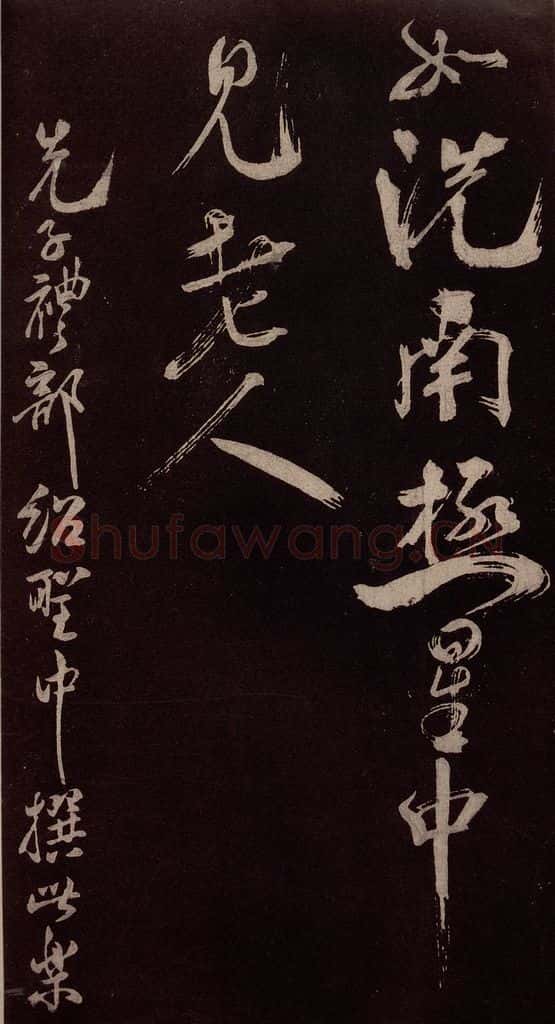 如洗南極星中
見老人
先子禮部紹聖中撰此樂
shufawang.CN